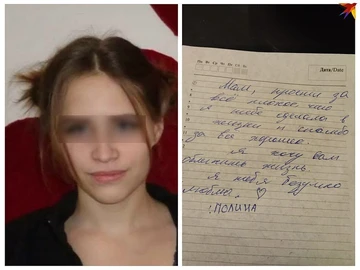 Пн Вт Ср Чт Пт Сб Вс
Дата/Date
Мам, прости за
всё плохое что
я тебе сделала в
жизни и спасибо
за всё хорошее.
Я хочу вам
облегчить жизнь
Я тебя безумно
люблю.
ПОЛИНА